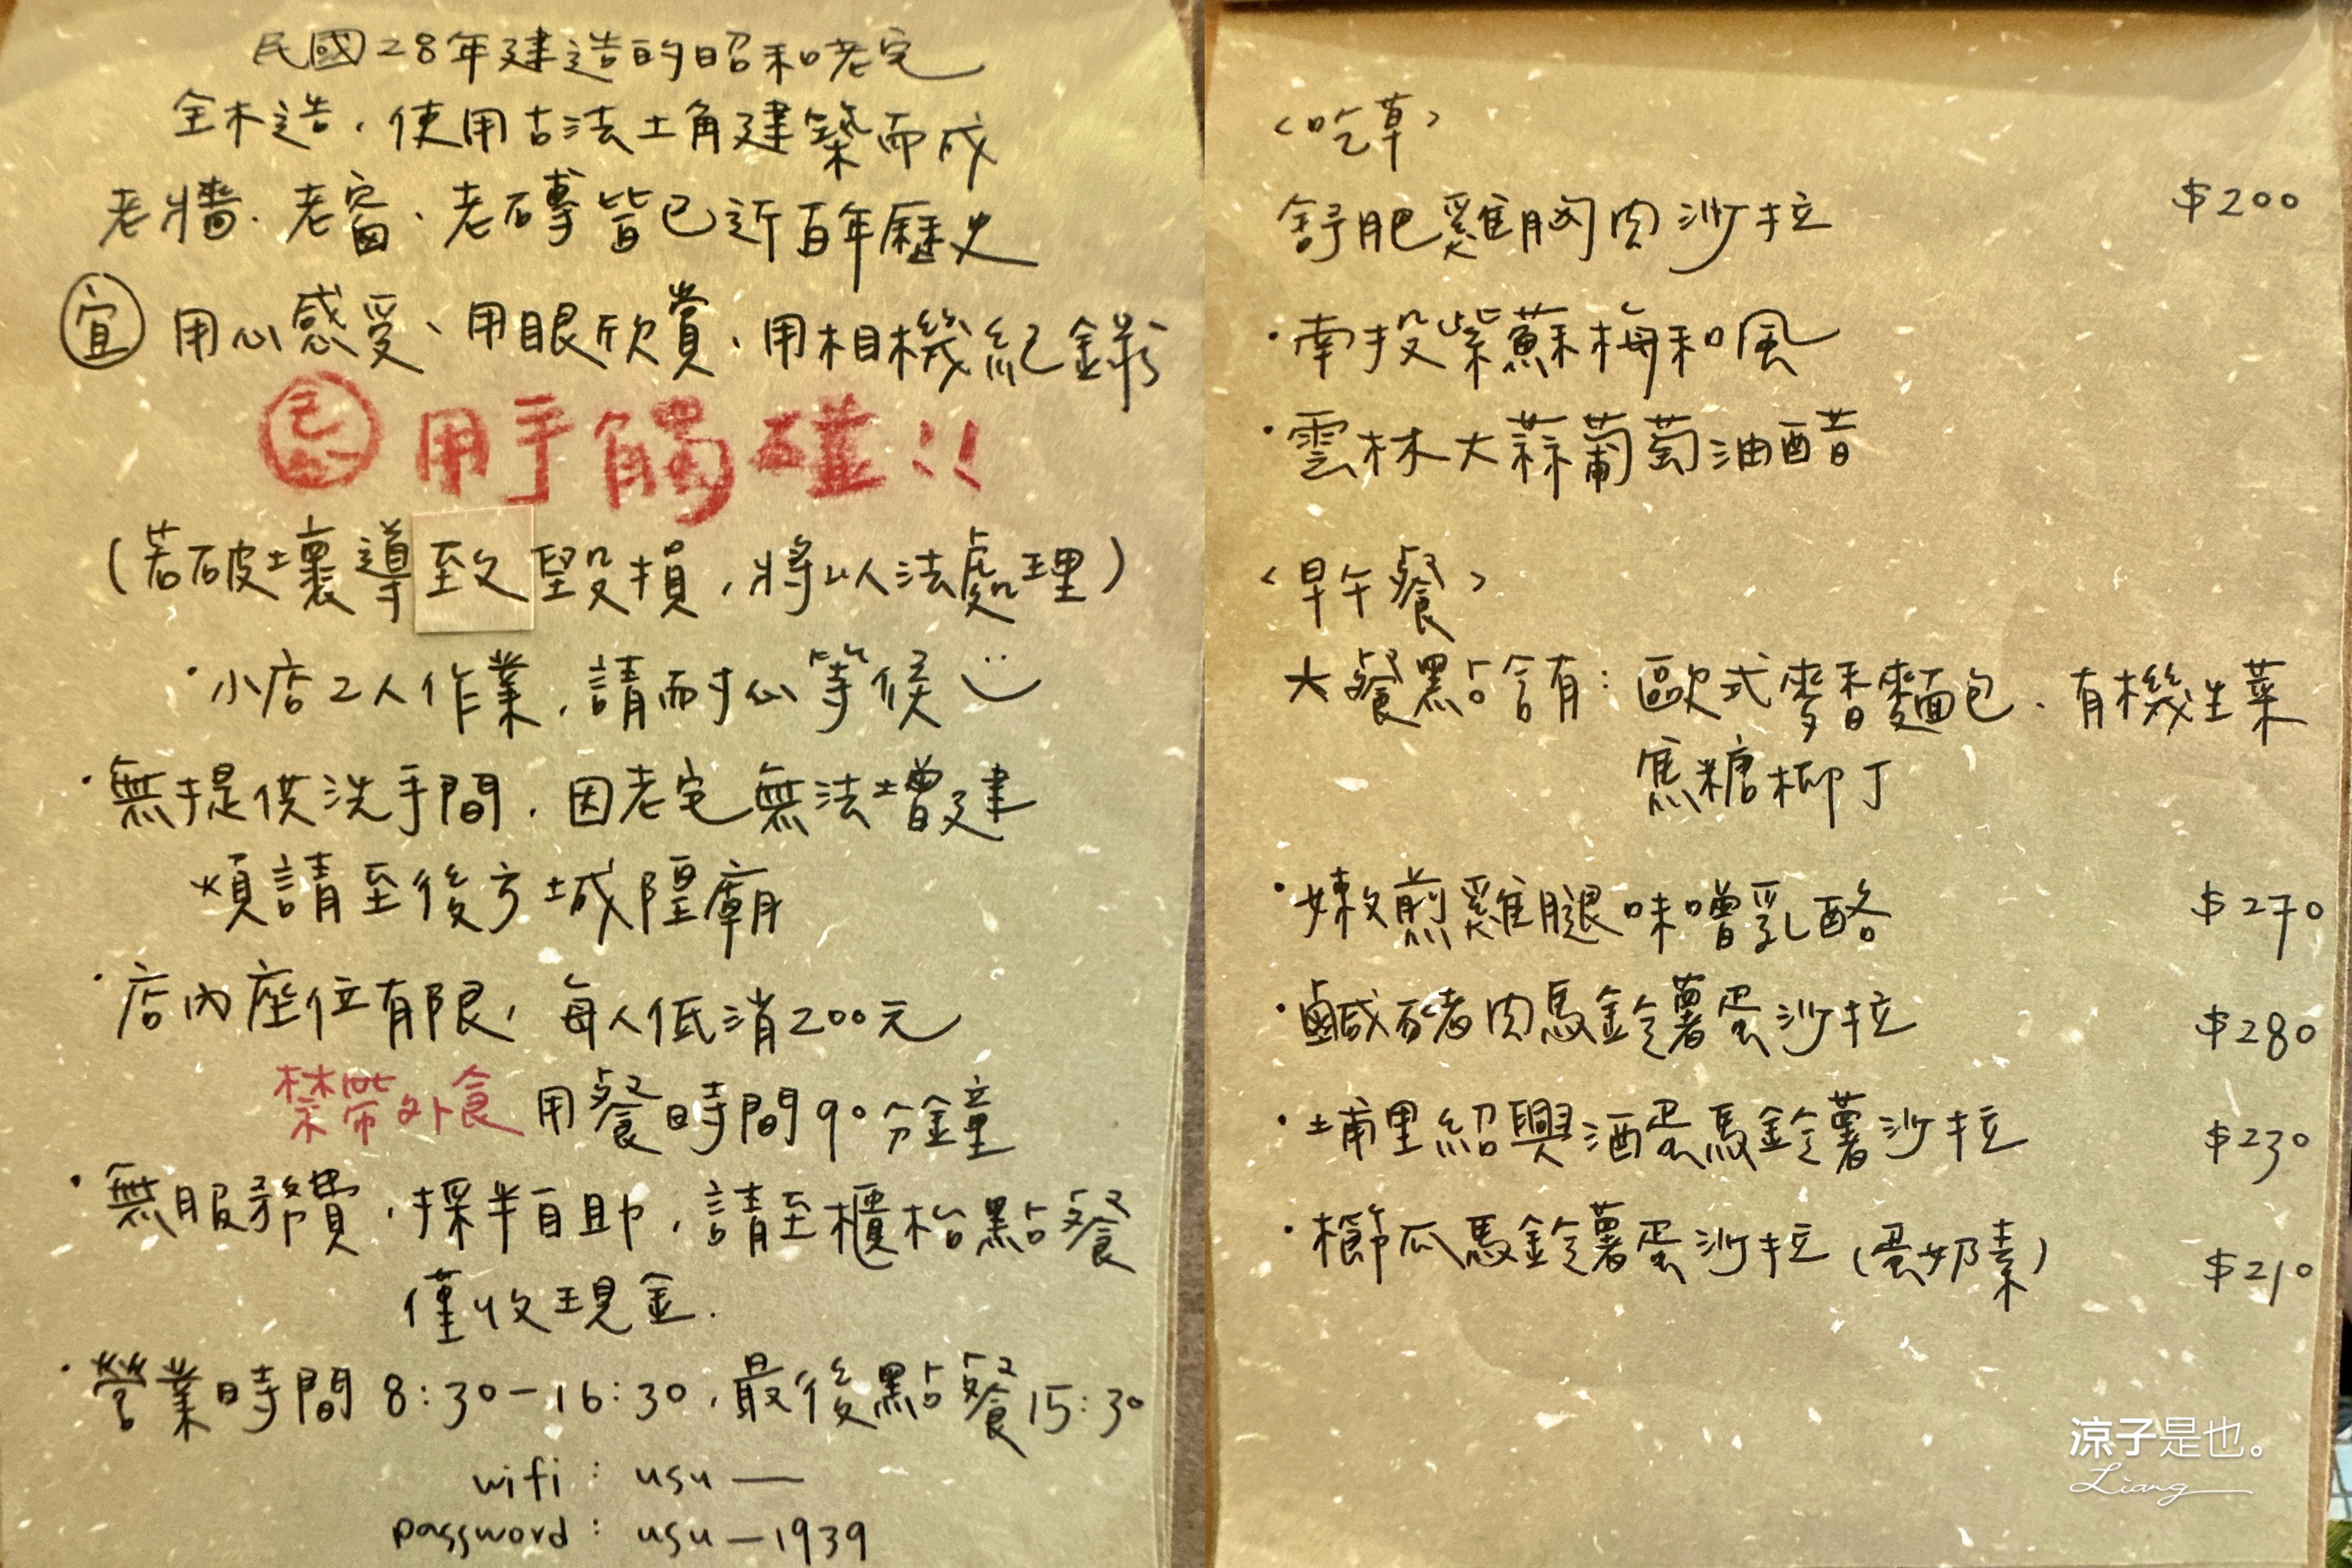 民國28年建造的昭和老宅
全木造,使用古法土角建築而成
老牆、老窗、老磚皆已近百年歷史
宜 用心感受、用眼欣賞、用相機紀錄
忌 用手觸碰!!
(若破壞導致毀損,將以法處理)
·小店2人作業,請耐心等候
·無提供洗手間,因老宅無法增建
煩請至後方城隍廟
·店內座位有限,每人低消200元
禁帶外食 用餐時間90分鐘
·無服務費,採半自助,請至櫃枱點餐
僅收現金.
·營業時間 8:30-16:30,最後點餐15:30
wifi: usu —
password: usu — 1939
<吃草>
舒肥雞胸肉沙拉 $200
·南投紫蘇梅和風
·雲林大蒜葡萄油醋
<早午餐>
大餐點含有:歐式麥香麵包、有機生菜
焦糖柳丁
·嫩煎雞腿味噌乳酪 $270
·鹹豬肉馬鈴薯蛋沙拉 $280
·埔里紹興酒蛋馬鈴薯沙拉 $230
·櫛瓜馬鈴薯蛋沙拉(蛋奶素) $210
涼子是也。
Liang